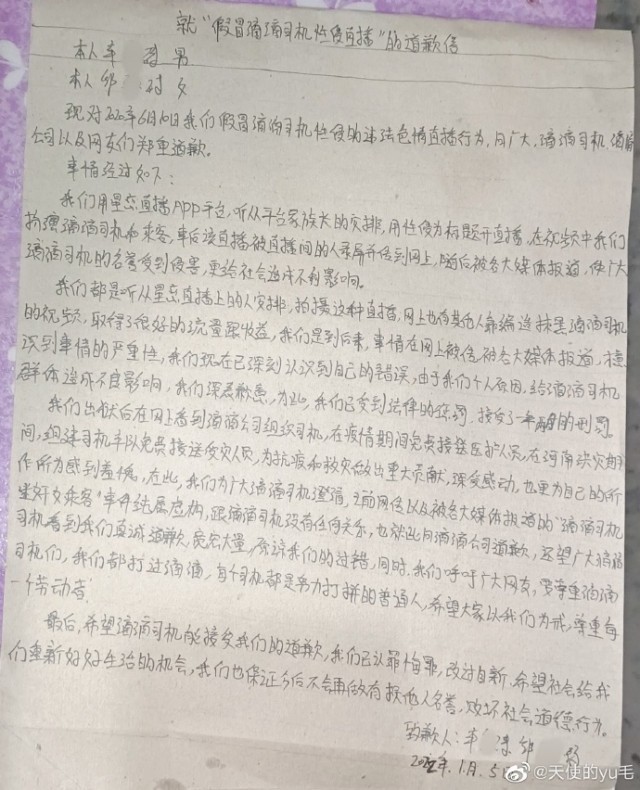 就“假冒滴滴司机性侵直播”的道歉信
本人车 男
本人邹 女
现对2020年6月10日我们假冒滴滴司机性侵的违法色情直播行为，向广大滴滴司机、滴滴
公司以及网友们郑重道歉。
事情经过如下：
我们用星恋直播APP平台，听从平台家族长的安排，用性侵为标题开直播，在视频中我们
扮演滴滴司机和乘客，事后该直播被直播间的人录屏并传到网上，随后被各大媒体报道，使广大
滴滴司机的名誉受到侵害，更给社会造成不利影响。
我们都是听从星恋直播上的人安排，拍摄这种直播，网上也有其他人靠编造抹黑滴滴司机
的视频，取得了很好的流量跟收益，我们是到后来，事情在网上被传，被各大媒体报道，才意
识到事情的严重性，我们现在已深刻认识到自己的错误，由于我们个人原因，给滴滴司机
群体造成不良影响，我们深表歉意，为此，我们已受到法律的惩罚，接受了一年 的刑罚。
我们出狱后在网上看到滴滴公司组织司机，在疫情期间免费接送医护人员，在河南洪灾期
间，组建司机车队免费接送受灾人员，为抗疫和救灾做出重大贡献，深受感动，也更为自己的所
作所为感到羞愧，在此，我们为广大滴滴司机澄清，之前网传以及被各大媒体报道的“滴滴司机
坐奸女乘客”事件纯属虚构，跟滴滴司机没有任何关系，也就此向滴滴公司道歉，还望广大滴滴
司机看到我们真诚道歉，宽宏大量，原谅我们的过错，同时，我们呼吁广大网友，要尊重滴滴
司机们，我们都打过滴滴，每个司机都是努力打拼的普通人，希望大家以我们为戒，尊重每
一个劳动者。
最后，希望滴滴司机能接受我们的道歉，我们已认罪悔罪，改过自新，希望社会给我
们重新好好生活的机会，我们也保证今后不会再做有损他人名誉，败坏社会道德行为。
致歉人：车 邹
2022年.1月.5日
@天使的yu毛